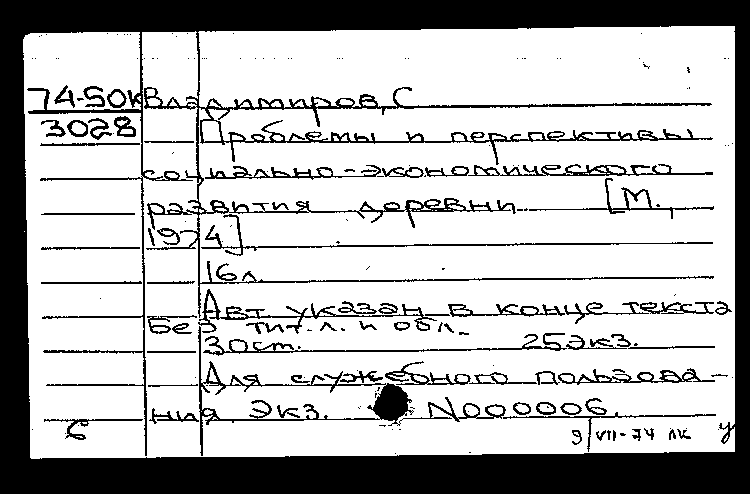 74-50к Владимиров, С
3028 Проблемы и перспективы
социально-экономического
развития деревни [М.,
1974].
16л.
Авт указан в конце текста
Без тит.л. и обл.
30ст. 25экз.
Для служебного пользова-
ния. Экз. N000006.
6
9/VII-74 лк у